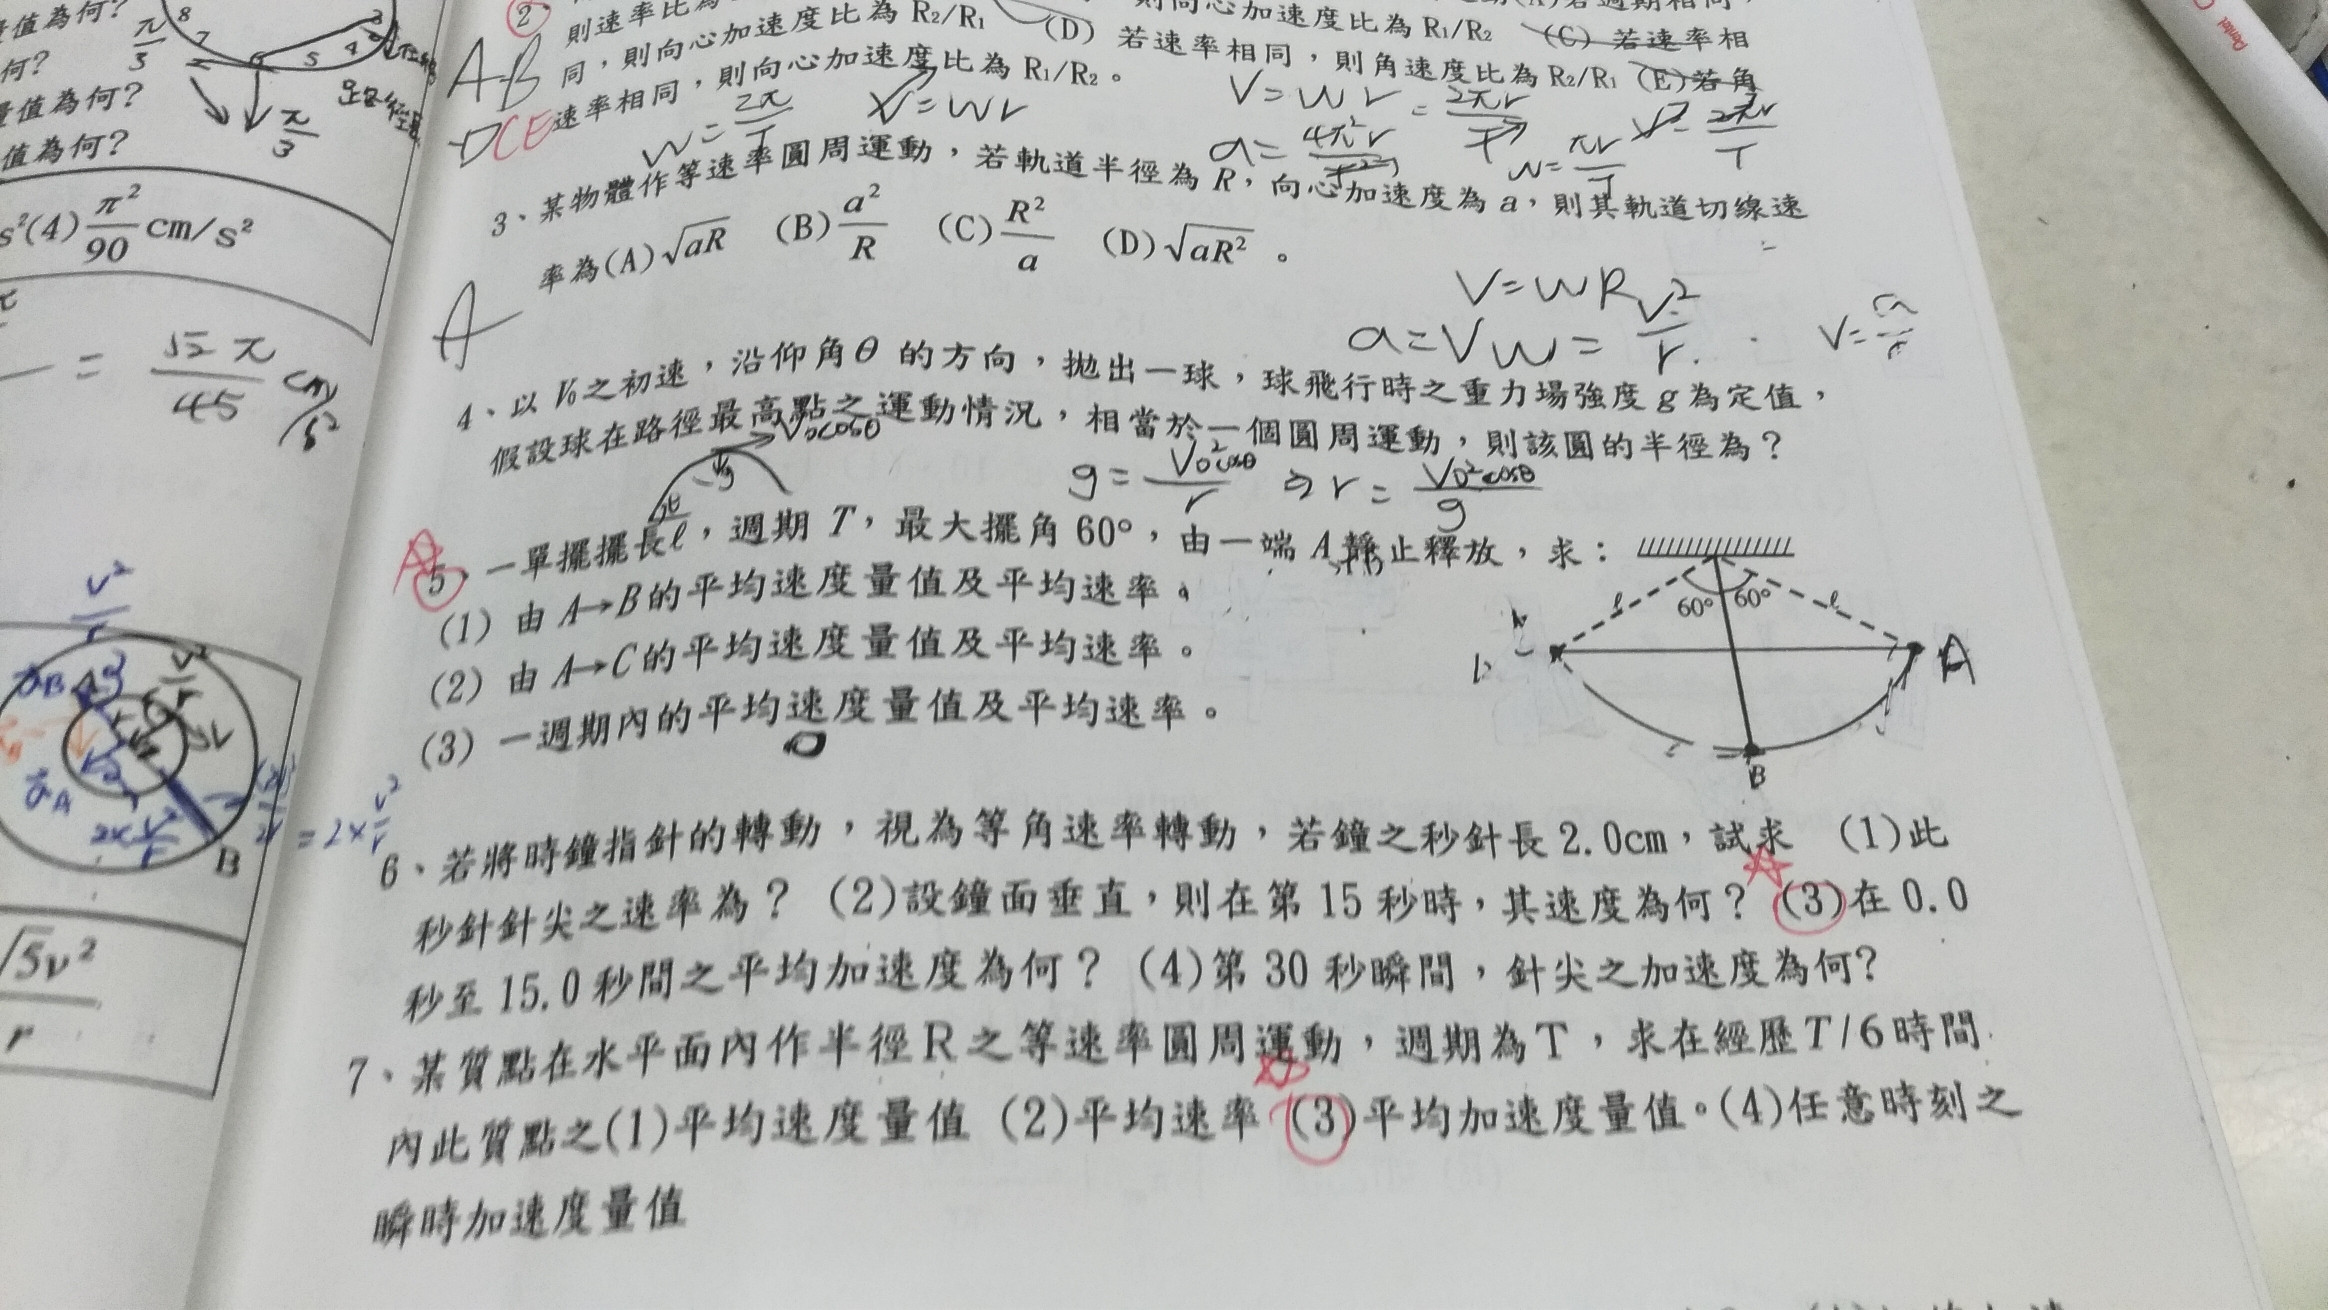 量值為何?
何?
量值為何?
值為何?
8
7
6
5
4
3
π/3
π/3
路徑長
s²(4) π²/90 cm/s²
= √2 π/45 cm/s²
v²/r
v²/r
B
= 2×v²/r
√5v²
r
2
同,則向心加速度比為 R₂/R₁ (D) 若速率相同,則角速度比為 R₂/R₁ (E) 若角
速率相同,則向心加速度比為 R₁/R₂。
則向心加速度比為 R₁/R₂ (C) 若速率相
A B
D CE
W=2π/T
V=Wr
V=Wr=2πr/T
a=4π²r/T²
3、某物體作等速率圓周運動,若軌道半徑為 R,向心加速度為 a,則其軌道切線速
率為(A)√aR (B) a²/R (C) R²/a (D) √aR²。
A
V=WR
a=VW=V²/r
4、以 V₀ 之初速,沿仰角 θ 的方向,拋出一球,球飛行時之重力場強度 g 為定值,
假設球在路徑最高點之運動情況,相當於一個圓周運動,則該圓的半徑為?
V₀cosθ
g
g=V₀²cosθ/r ⇒ r=V₀²cosθ/g
5、一單擺擺長 ℓ,週期 T,最大擺角 60°,由一端 A 靜止釋放,求:
(1) 由 A→B 的平均速度量值及平均速率。
(2) 由 A→C 的平均速度量值及平均速率。
(3) 一週期內的平均速度量值及平均速率。
0
60° 60°
ℓ ℓ
A
B
6、若將時鐘指針的轉動,視為等角速率轉動,若鐘之秒針長 2.0cm,試求 (1)此
秒針針尖之速率為? (2)設鐘面垂直,則在第 15 秒時,其速度為何? (3)在 0.0
秒至 15.0 秒間之平均加速度為何? (4)第 30 秒瞬間,針尖之加速度為何?
7、某質點在水平面內作半徑 R 之等速率圓周運動,週期為 T,求在經歷 T/6 時間
內此質點之(1)平均速度量值 (2)平均速率 (3)平均加速度量值。(4)任意時刻之
瞬時加速度量值
Pentel